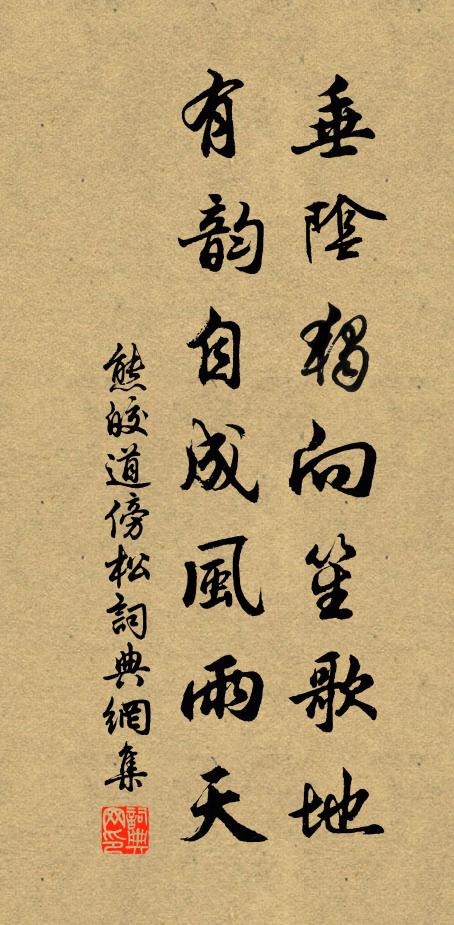 垂陰獨向笙歌地
有韵自成風雨天
熊皎道傍松詞典網集
詞典网印